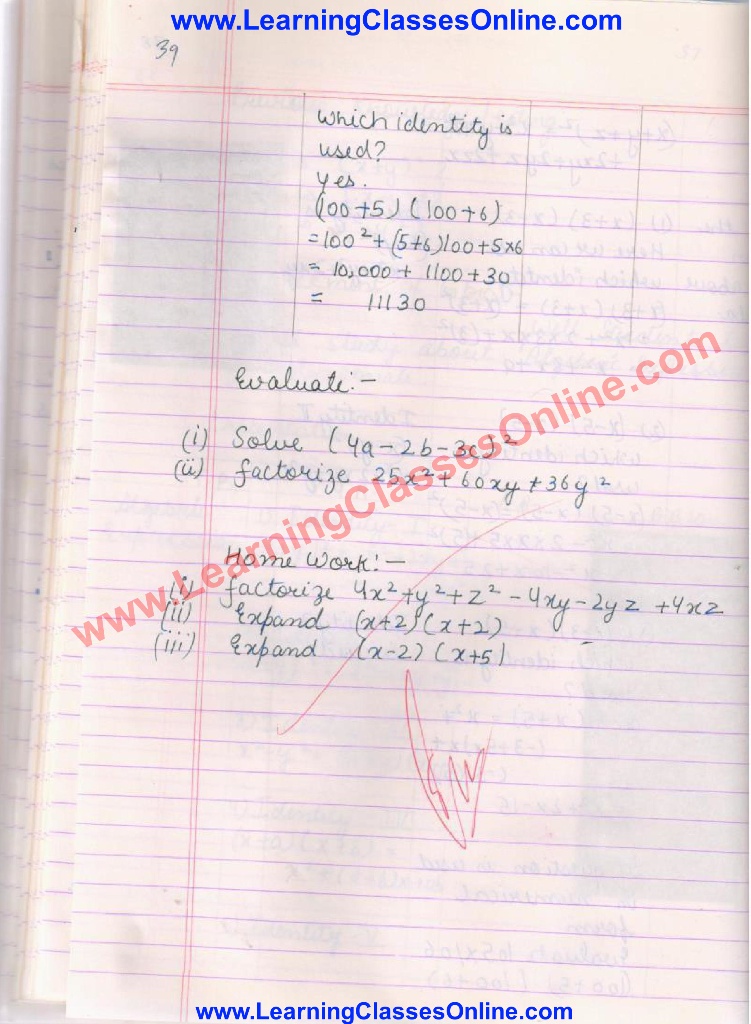 www.LearningClassesOnline.com
39
which identity is
used?
yes.
(100+5) (100+6)
=100²+(5+6)100+5×6
= 10,000+ 1100+30
= 11130
Evaluate:-
(i) Solve (4a-2b-3c)²
(ii) factorize 25x²+60xy+36y²
www.LearningClassesOnline.com
Home Work:-
(i) factorize 4x²+y²+z²-4xy-2yz+4xz
(ii) Expand (x+2)(x+2)
(iii) Expand (x-2) (x+5)
www.LearningClassesOnline.com